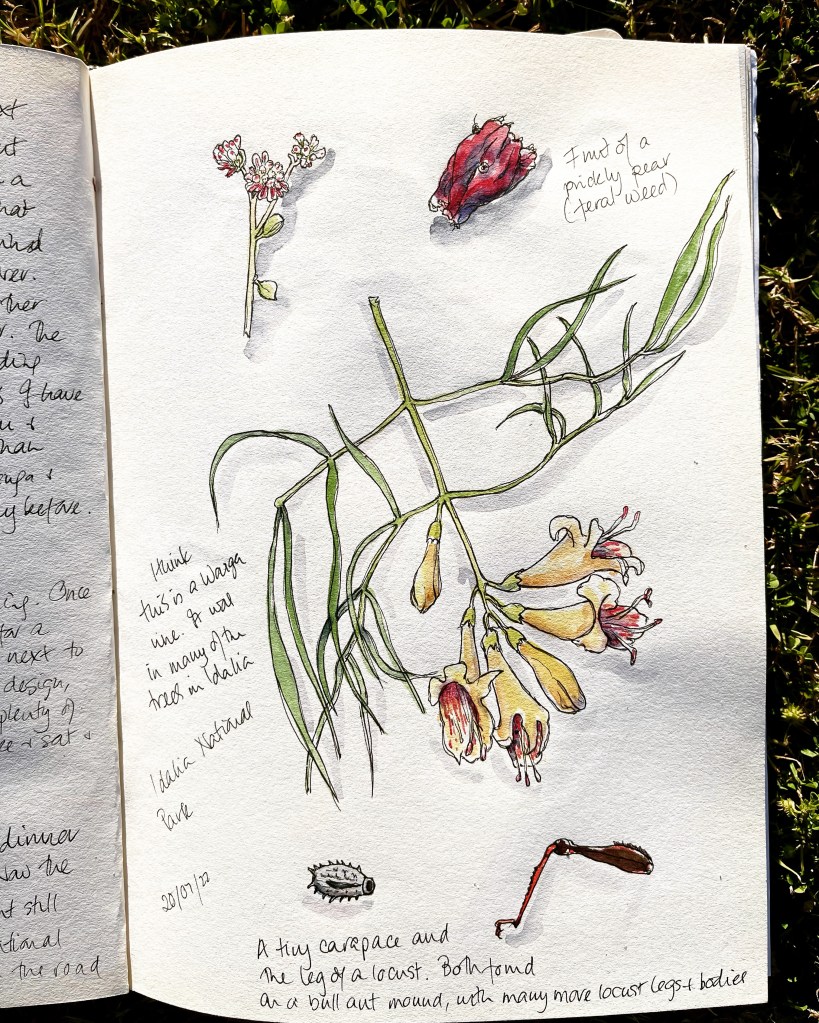 xt
ut
a
hat
What
rer.
ther
r. The
ding
s I have
u &
than
enga &
y before.
ing. Once
for a
next to
design,
plenty of
ee & sat &
dinner
Now the
nt still
ational
the road
Fruit of a
prickly pear
(feral weed)
I think
this is a Wonga
vine. It was
in many of the
trees in Idalia
Idalia National
Park
20/07/22
A tiny carapace and
the leg of a locust. Both found
on a bull ant mound, with many more locust legs & bodies